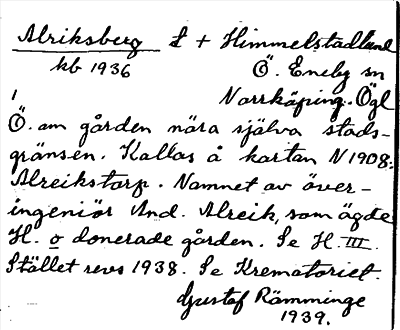 Alriksberg £ + Himmelstadlund
kb 1936 Ö. Eneby sn
1 Norrköping. Ögl
Ö. om gården nära själva stads-
gränsen. Kallas å kartan N 1908:
Alreikstorp. Namnet av över-
ingeniör And. Alreik, som ägde
H. o donerade gården. Se H III.
Stället revs 1938. Se Krematoriet.
Gustaf Rämminge
1939.